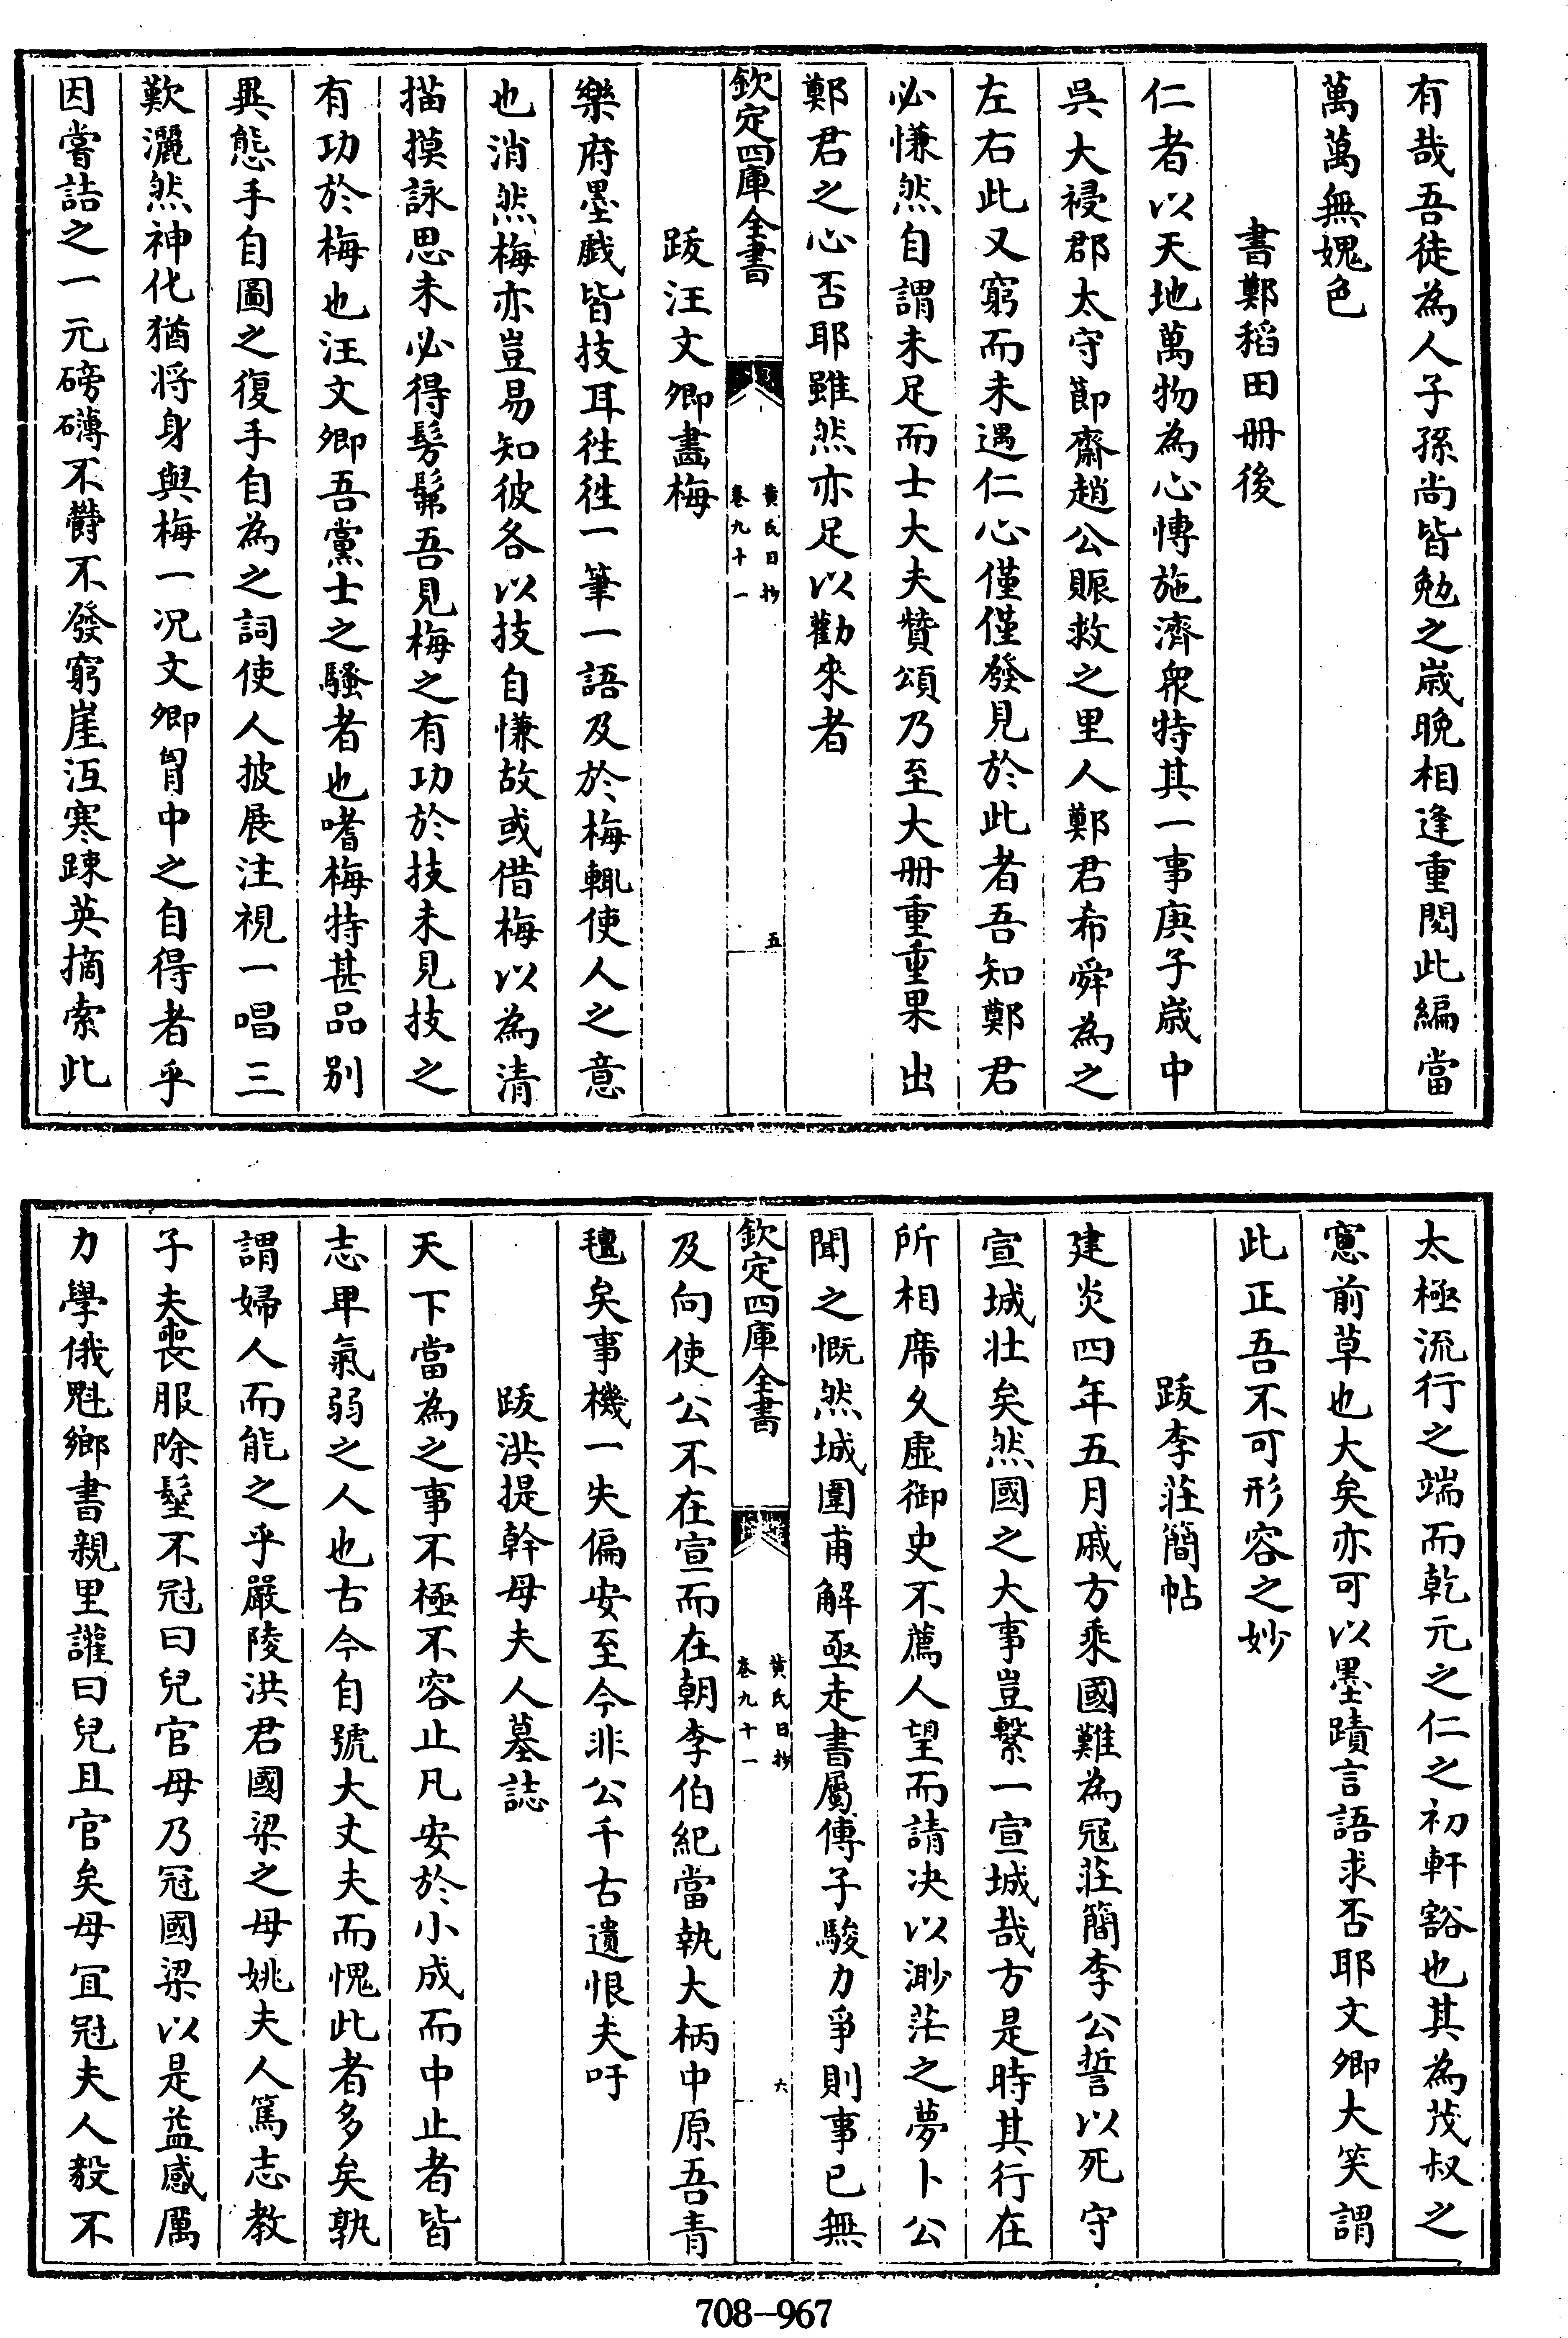 有哉吾徒為人子孫尚皆勉之歲晚相逢重閱此編當
萬萬無媿色
書鄭稻田册後
仁者以天地萬物為心博施濟衆特其一事庚子歲中
吳大祲郡太守節齋趙公賑救之里人鄭君希舜為之
左右此又窮而未遇仁心僅僅發見於此者吾知鄭君
必慊然自謂未足而士大夫贊頌乃至大册重重果出
鄭君之心否耶雖然亦足以勸來者
欽定四庫全書
黄氏日抄
卷九十一
五
跋汪文卿畫梅
樂府墨戲皆技耳徃徃一筆一語及於梅輒使人之意
也消然梅亦豈易知彼各以技自慊故或借梅以為清
描摸詠思未必得髣髴吾見梅之有功於技未見技之
有功於梅也汪文卿吾黨士之騷者也嗜梅特甚品别
異態手自圖之復手自為之詞使人披展注視一唱三
歎灑然神化猶將身與梅一况文卿胷中之自得者乎
因嘗詰之一元磅礴不欝不發窮崖沍寒踈英摘索此
太極流行之端而乾元之仁之初軒豁也其為茂叔之
窻前草也大矣亦可以墨蹟言語求否耶文卿大笑謂
此正吾不可形容之妙
跋李莊簡帖
建炎四年五月戚方乘國難為冦莊簡李公誓以死守
宣城壮矣然國之大事豈繫一宣城哉方是時其行在
所相席久虚御史不薦人望而請决以渺茫之夢卜公
聞之慨然城圍甫解亟走書屬傅子駿力爭則事已無
欽定四庫全書
黄氏日抄
卷九十一
六
及向使公不在宣而在朝李伯紀當執大柄中原吾青
氊矣事機一失偏安至今非公千古遺恨夫吁
跋洪提幹母夫人墓誌
天下當為之事不極不容止凡安於小成而中止者皆
志卑氣弱之人也古今自號大丈夫而愧此者多矣孰
謂婦人而能之乎嚴陵洪君國梁之母姚夫人篤志教
子夫喪服除髽不冠曰兒官母乃冠國梁以是益感厲
力學俄魁鄉書親里讙曰兒且官矣母冝冠夫人毅不
708-967